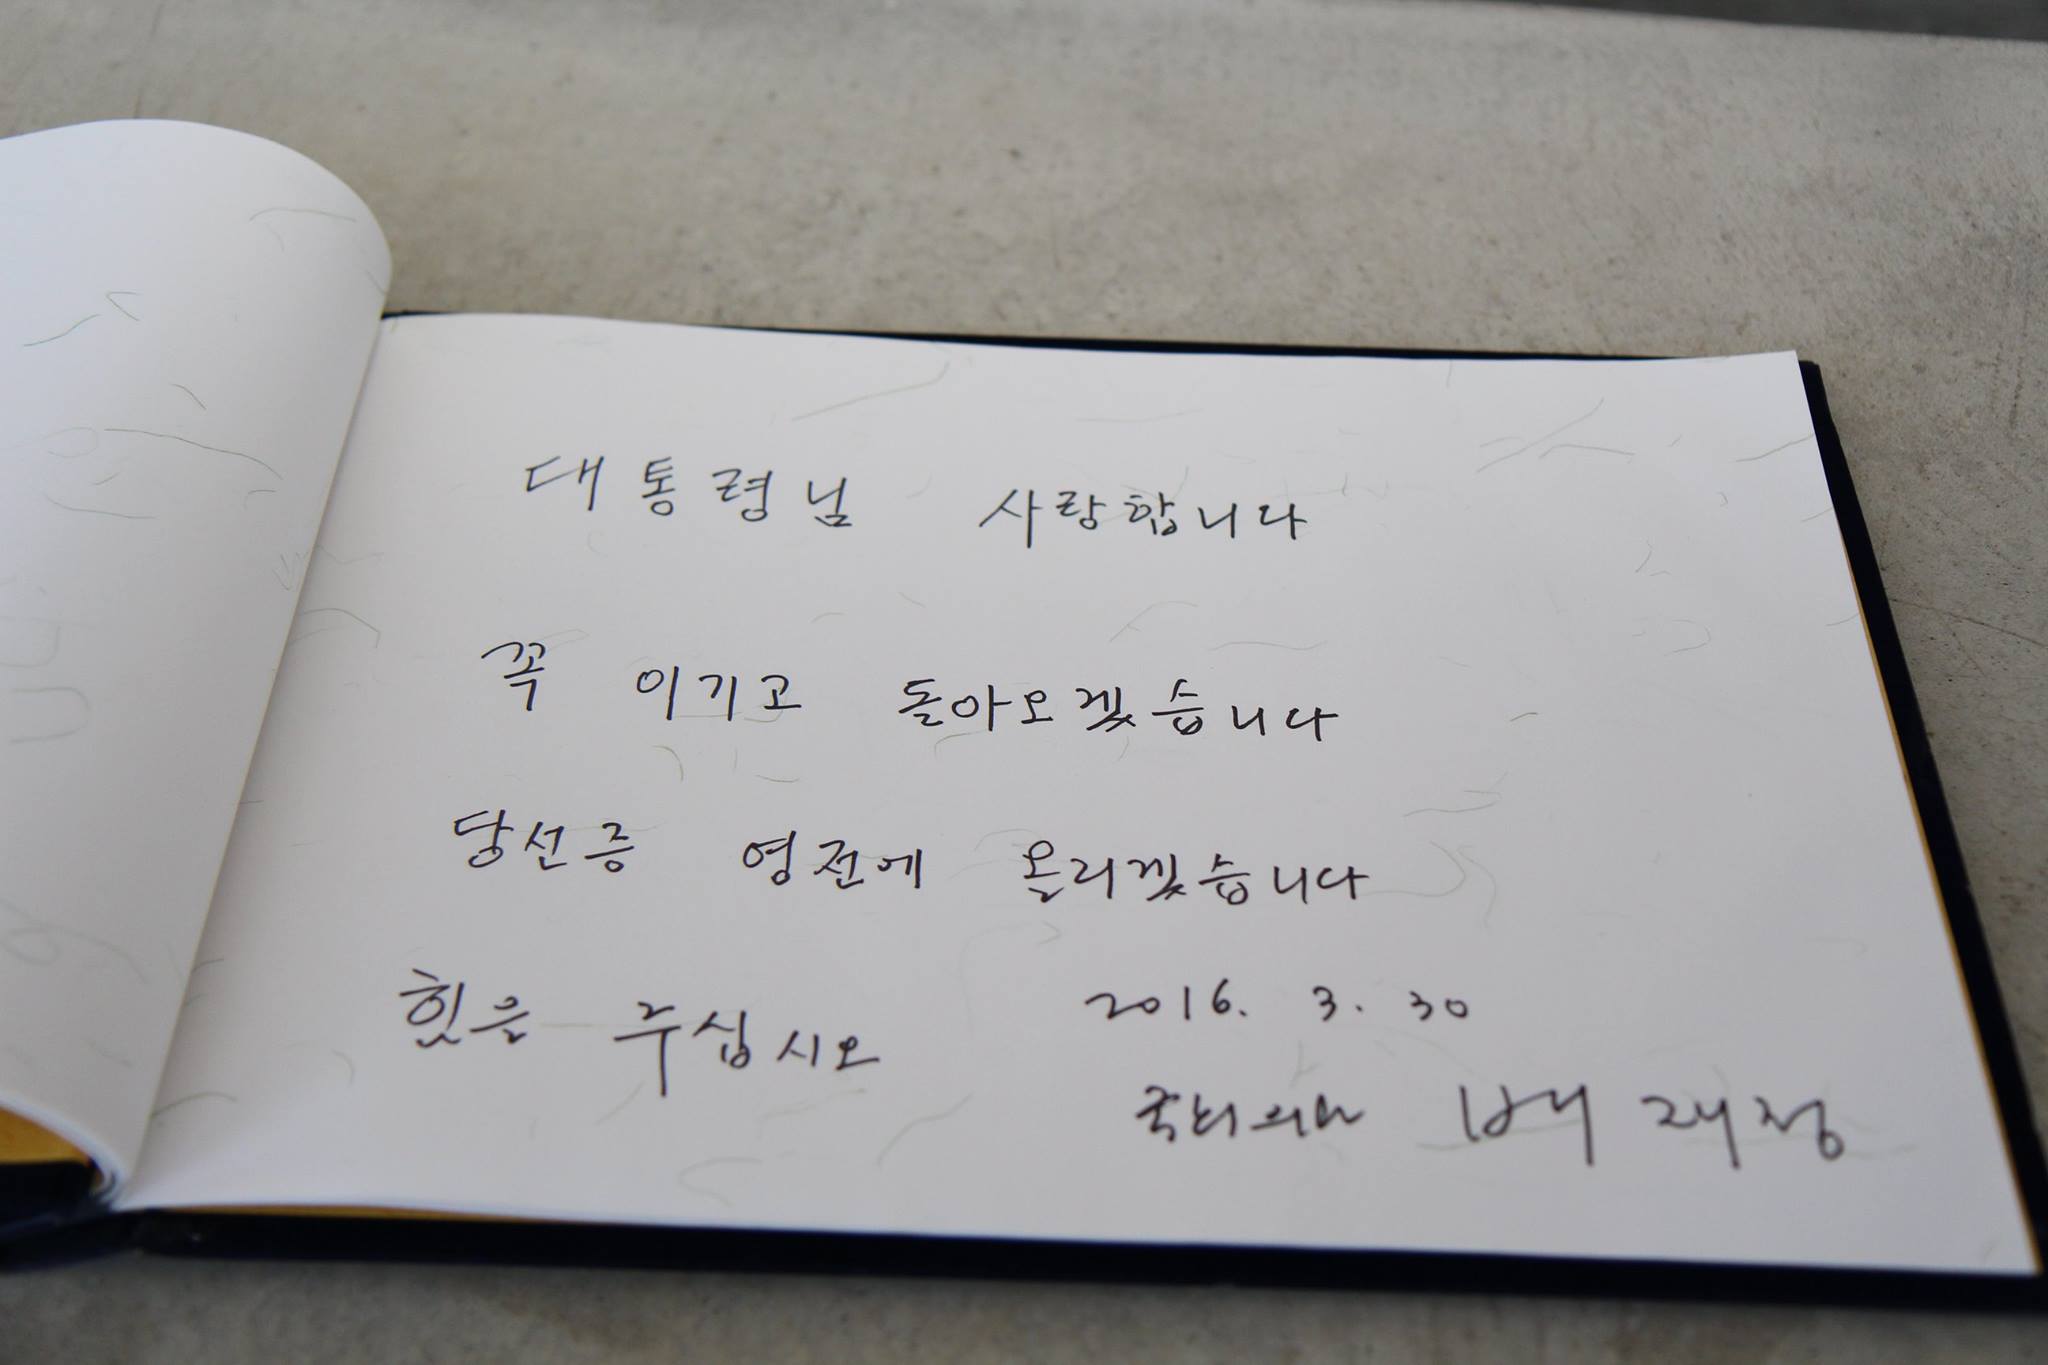 대통령님 사랑합니다
꼭 이기고 돌아오겠습니다
당선증 영전에 올리겠습니다
힘을 주십시오
2016. 3. 30
국회의원 배재정